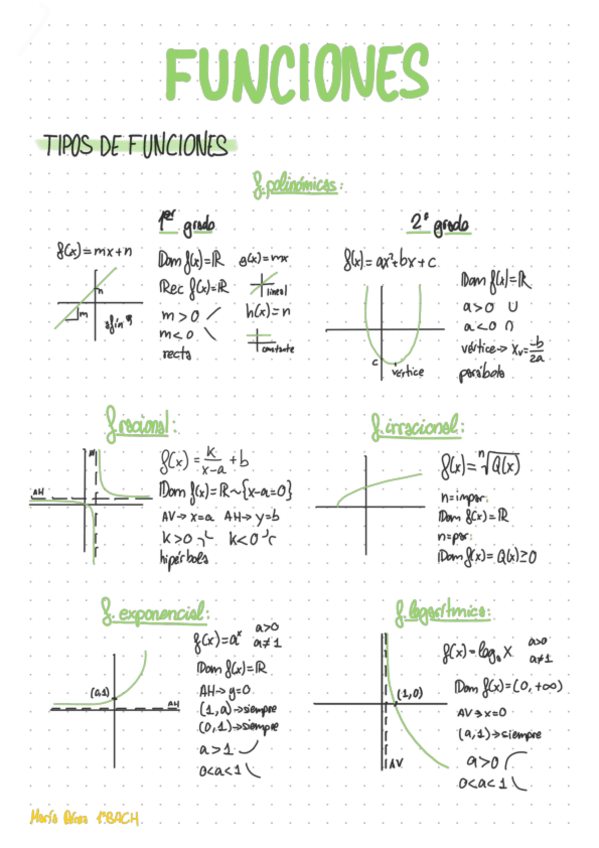 FUNCIONES
TIPOS DE FUNCIONES
f. polinómicas:
1er grado
f(x)=mx+n
n
m
afín
Dom f(x)=ℝ
Rec f(x)=ℝ
m>0
m<0
recta
g(x)=mx
lineal
h(x)=n
constante
2º grado
f(x)=ax²+bx+c
c
vértice
Dom f(x)=ℝ
a>0 ∪
a<0 ∩
vértice→ Xv=-b/2a
parábola
f. racional:
AH
f(x)=K/x-a+b
Dom f(x)=ℝ~{x-a=0}
AV→x=a AH→y=b
K>0 K<0
hipérbola
f. irracional:
f(x)=ⁿ√Q(x)
n=impar:
Dom f(x)=ℝ
n=par:
Dom f(x)=Q(x)≥0
f. exponencial:
(0,1)
AH
f(x)=aˣ a>0
a≠1
Dom f(x)=ℝ
AH→y=0
(1,a)→siempre
(0,1)→siempre
a>1
0<a<1
f. logarítmica:
(1,0)
AV
f(x)=logₐ X a>0
a≠1
Dom f(x)=(0,+∞)
AV→x=0
(a,1)→siempre
a>0
0<a<1
María 1ºBACH